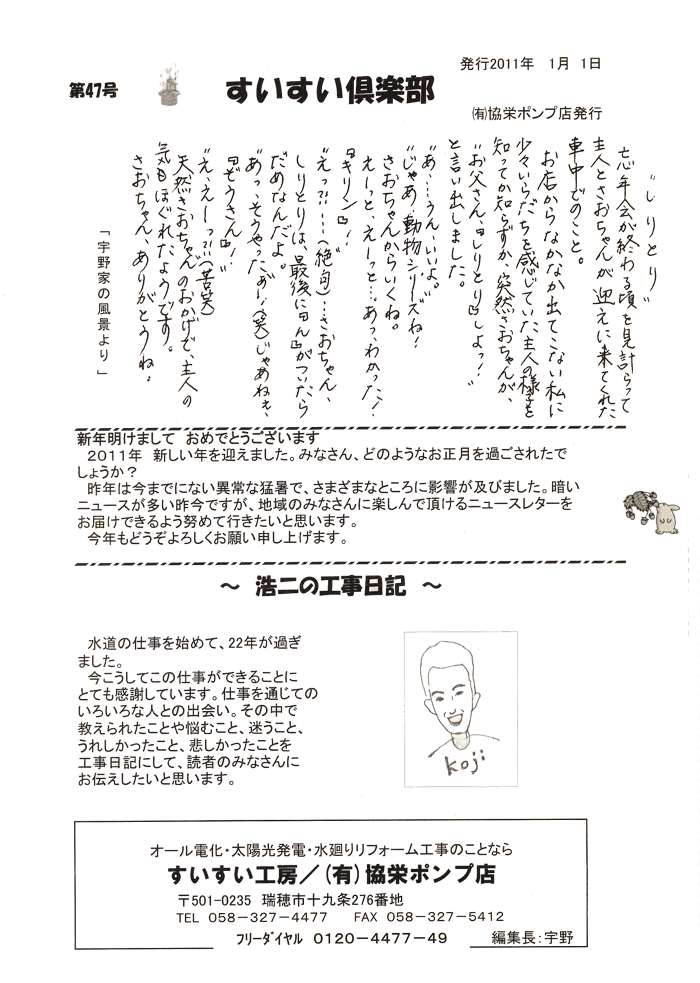 発行2011年　1月　1日
第47号
すいすい倶楽部
㈲協栄ポンプ店発行
“しりとり”
忘年会が終わる頃を見計らって
主人とさおちゃんが迎えに来てくれた
車中でのこと。
お店からなかなか出てこない私に
少々いらだちを感じていた主人の様子を
知ってか知らずか、突然さおちゃんが、
“お父さん、『しりとり』しよっ！”
と言い出しました。
“あ・・・うん、いいよ。”
“じゃあ、動物シリーズね！
さおちゃんからいくね。
えーっと、えーっと…あっ、わかった！
『キリン』！”
“えっ?!…（絶句）…さおちゃん、
しりとりは、最後に『ん』がついたら
だめなんだよ。”
“あっ、そうやったぁー！（笑）じゃあねぇ、
『ぞうさん』！”
“え、えーっ?!”（苦笑）
天然さおちゃんのおかげで、主人の
気もほぐれたようです。
さおちゃん、ありがとうね。
「宇野家の風景より」
新年明けまして　おめでとうございます
2011年　新しい年を迎えました。みなさん、どのようなお正月を過ごされたで
しょうか？
昨年は今までにない異常な猛暑で、さまざまなところに影響が及びました。暗い
ニュースが多い昨今ですが、地域のみなさんに楽しんで頂けるニュースレターを
お届けできるよう努めて行きたいと思います。
今年もどうぞよろしくお願い申し上げます。
～　浩二の工事日記　～
水道の仕事を始めて、22年が過ぎ
ました。
今こうしてこの仕事ができることに
とても感謝しています。仕事を通じての
いろいろな人との出会い。その中で
教えられたことや悩むこと、迷うこと、
うれしかったこと、悲しかったことを
工事日記にして、読者のみなさんに
お伝えしたいと思います。
koji
オール電化・太陽光発電・水廻りリフォーム工事のことなら
すいすい工房／(有)協栄ポンプ店
〒501-0235　瑞穂市十九条276番地
TEL　058－327－4477　　FAX　058－327－5412
ﾌﾘｰﾀﾞｲﾔﾙ　0120－4477－49
編集長：宇野